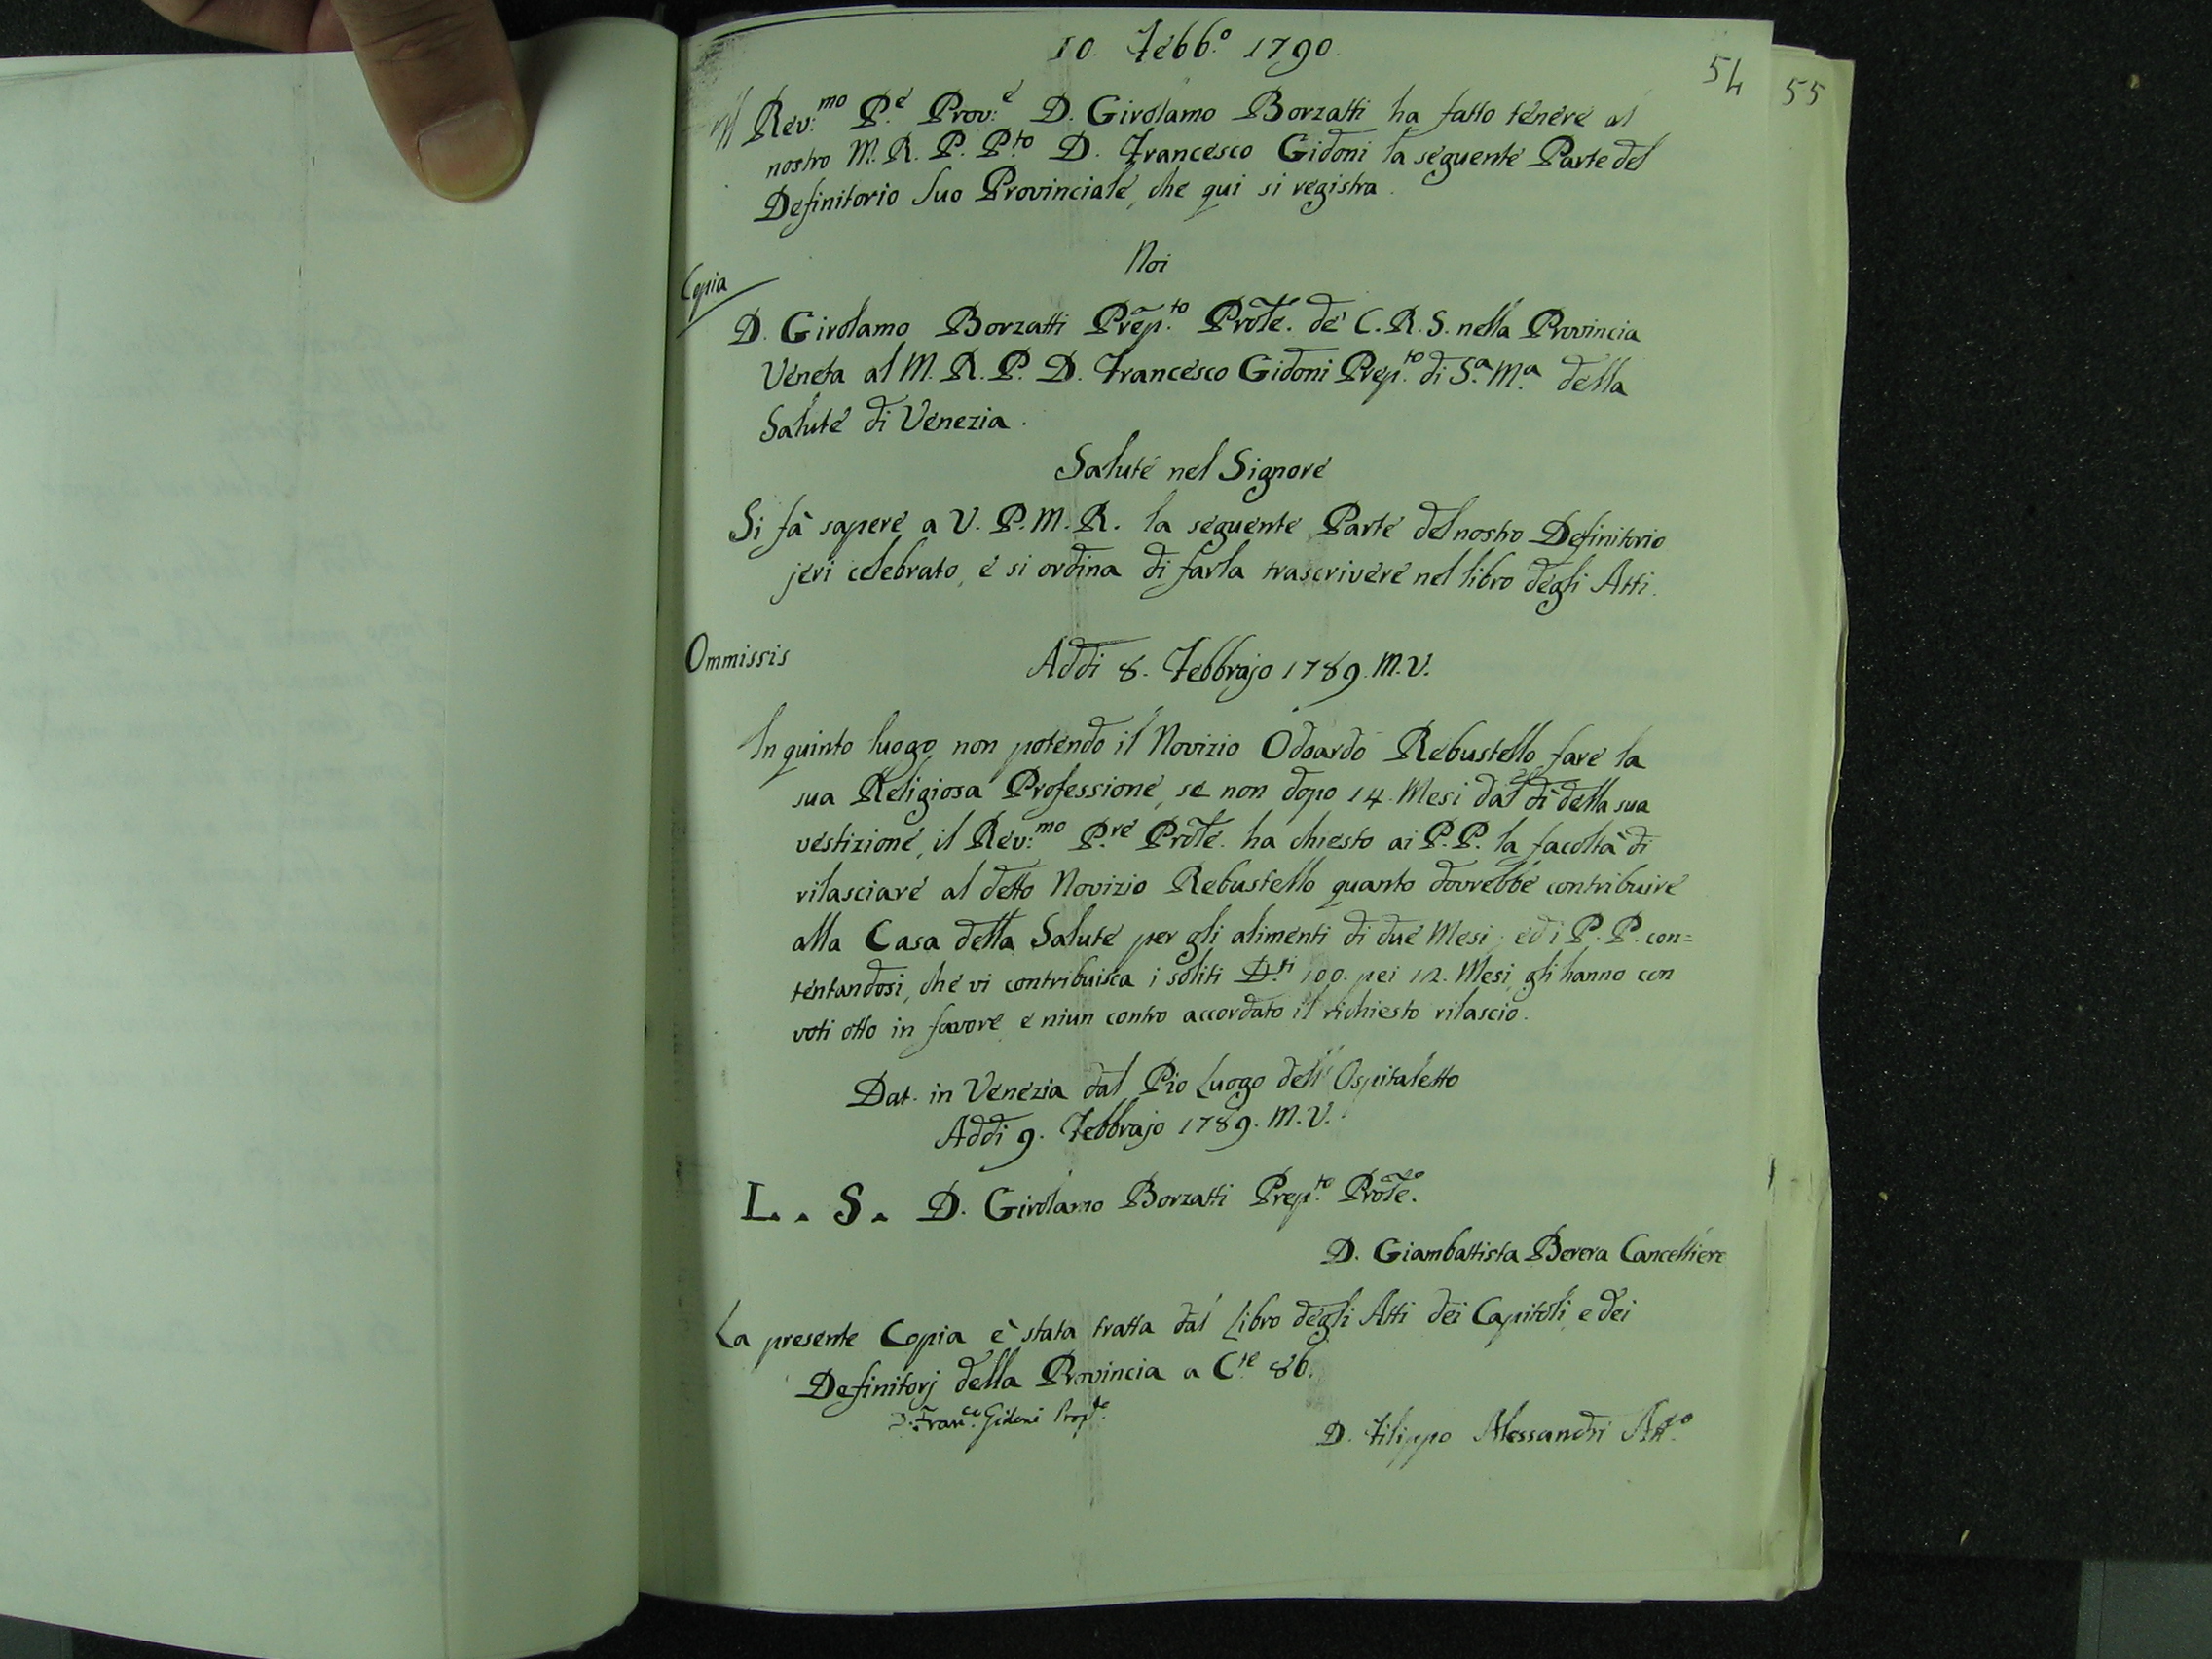 10. Febb.º 1790.
54
55
Il Rev:mo P.e Prov:e D. Girolamo Borzatti ha fatto tenere al
nostro M. R. P. P.to D. Francesco Gidoni la seguente Parte del
Definitorio Suo Provinciale, che qui si registra.
Noi
Copia
D. Girolamo Borzatti Prep.to Prõle. de' C. R. S. nella Provincia
Veneta al M. R. P. D. Francesco Gidoni Prep.to di S.a M.a della
Salute di Venezia.
Salute nel Signore
Si fà sapere a V. P. M. R. la seguente Parte del nostro Definitorio
jeri celebrato, e si ordina di farla trascrivere nel libro degli Atti.
Ommissis
Addi 8. Febbrajo 1789. M. V.
In quinto luogo, non potendo il Novizio Odoardo Rebustello fare la
sua Religiosa Professione, se non dopo 14. Mesi dal dì della sua
vestizione, il Rev:mo P.re Prõle. ha chiesto ai P. P. la facoltà di
rilasciare al detto Novizio Rebustello quanto dovrebbe contribuire
alla Casa della Salute per gli alimenti di due Mesi; ed i P. P. con=
tentandosi, che vi contribuisca i soliti D.ti 100. pei 12. Mesi, gli hanno con
voti otto in favore, e niun contro accordato il richiesto rilascio.
Dat. in Venezia dal Pio Luogo dell' Ospitaletto
Addi 9. Febbrajo 1789. M. V.
L. S. D. Girolamo Borzatti Prep.to Prõle.
D. Giambattista Berera Cancelliere
La presente Copia è stata tratta dal Libro degli Atti dei Capitoli, e dei
Definitorj della Provincia a C.te 86.
D. Fran.co Gidoni Prep.to
D. Filippo Alessandri Att.º